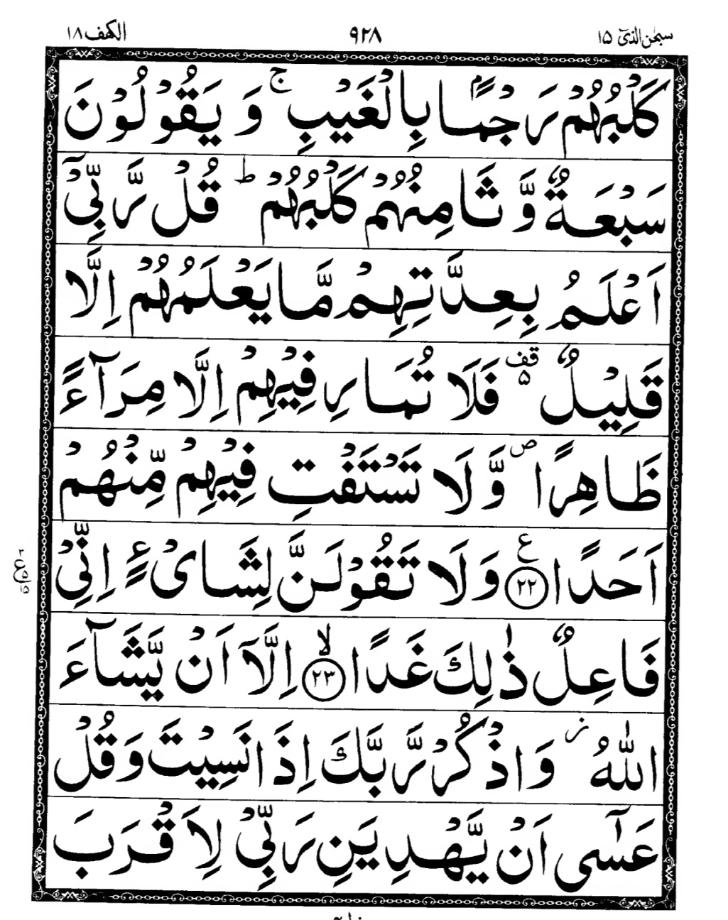 سبحٰن الذیٓ ١٥ ٩٢٨ الکهف ١٨
كَلْبُهُمْ رَجْمًۢا بِالْغَيْبِ ۚ وَ يَقُوْلُوْنَ
سَبْعَةٌ وَّ ثَامِنُهُمْ كَلْبُهُمْ ؕ قُلْ رَّبِّيْۤ
اَعْلَمُ بِعِدَّتِهِمْ مَّا يَعْلَمُهُمْ اِلَّا
قَلِيْلٌ قف ۵ فَلَا تُمَارِ فِيْهِمْ اِلَّا مِرَآءً
ظَاهِرًا ص وَّلَا تَسْتَفْتِ فِيْهِمْ مِّنْهُمْ
اَحَدًا ع ﴿٢٢﴾ وَلَا تَقُوْلَنَّ لِشَایْءٍ اِنِّيْ
فَاعِلٌ ذٰلِكَ غَدًا ۙ ﴿٢٣﴾ اِلَّاۤ اَنْ يَّشَآءَ
اللّٰهُ ز وَاذْكُرْ رَّبَّكَ اِذَا نَسِيْتَ وَقُلْ
عَسٰۤى اَنْ يَّهْدِيَنِ رَبِّيْ لِاَقْرَبَ